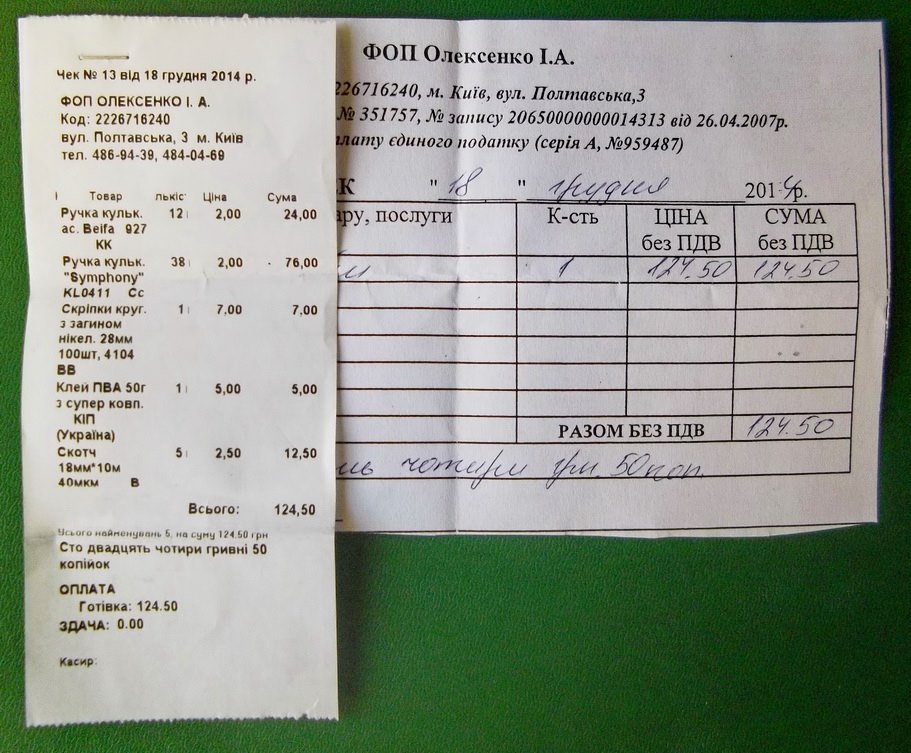 Чек № 13 від 18 грудня 2014 р.
ФОП ОЛЕКСЕНКО І. А.
Код: 2226716240
вул. Полтавська, 3 м. Київ
тел. 486-94-39, 484-04-69
Товар лькіс Ціна Сума
Ручка кульк. 12 2,00 24,00
ас. Beifa 927
КК
Ручка кульк. 38 2,00 76,00
"Symphony"
KL0411 Cc
Скріпки круг. 1 7,00 7,00
з загином
нікел. 28мм
100шт, 4104
ВВ
Клей ПВА 50г 1 5,00 5,00
з супер ковп.
КІП
(Україна)
Скотч 5 2,50 12,50
18мм*10м
40мкм В
Всього: 124,50
Усього найменувань 5, на суму 124.50 грн
Сто двадцять чотири гривні 50
копійок
ОПЛАТА
Готівка: 124.50
ЗДАЧА: 0.00
Касир:
ФОП Олексенко І.А.
2226716240, м. Київ, вул. Полтавська,3
№ 351757, № запису 20650000000014313 від 26.04.2007р.
плату єдиного податку (серія А, №959487)
"18" грудня 2014р.
ару, послуги К-сть ЦІНА СУМА
без ПДВ без ПДВ
1 124.50 124.50
РАЗОМ БЕЗ ПДВ 124.50
чотири грн. 50 коп.